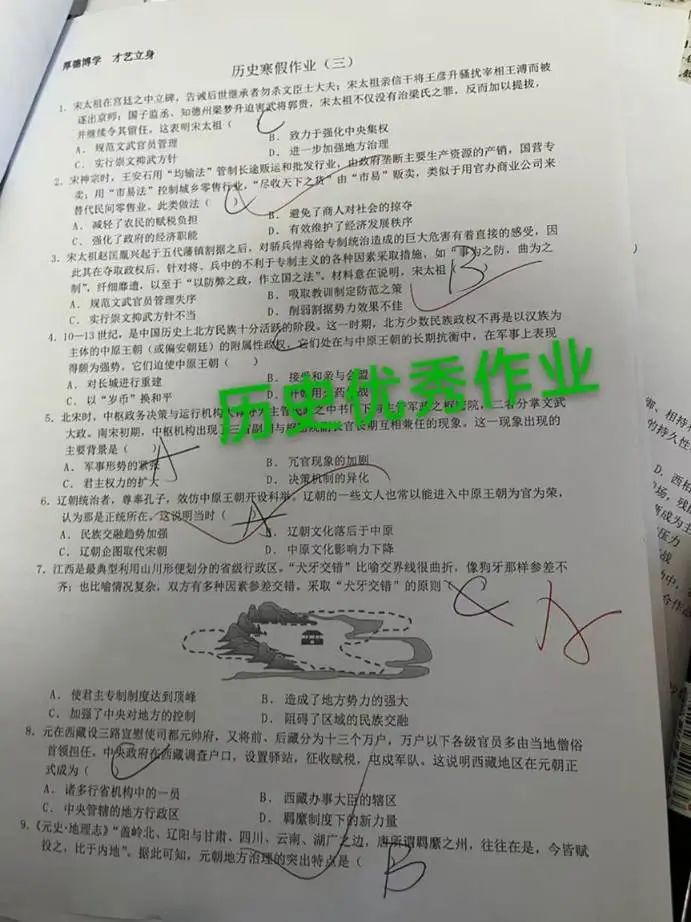 厚德博学　才艺立身
历史寒假作业（三）
1. 宋太祖在宫廷之中立碑，告诫后世继承者勿杀文臣士大夫；宋太祖亲信干将王彦升骚扰宰相王溥而被
逐出京师；国子监丞、知德州梁梦升迫害武将郭贵，宋太祖不仅没有治梁氏之罪，反而加以提拔，
并继续令其留任。这表明宋太祖（ C
A. 规范文武官员管理　B. 致力于强化中央集权
C. 实行崇文抑武方针　D. 进一步加强地方治理
2. 宋神宗时，王安石用“均输法”管制长途贩运和批发行业，由政府垄断主要生产资源的产销，国营专
卖；用“市易法”控制城乡零售行业，“尽收天下之货”由“市易”贩卖，类似于用官办商业公司来
替代民间零售业。此类做法（ C ）
A. 减轻了农民的赋税负担　B. 避免了商人对社会的掠夺
C. 强化了政府的经济职能　D. 有效维护了经济发展秩序
3. 宋太祖赵匡胤兴起于五代藩镇割据之后，对骄兵悍将给专制统治造成的巨大危害有着直接的感受，因
此其在夺取政权后，针对将、兵中的不利于专制主义的各种因素采取措施，如“事为之防，曲为之
制”，纤细靡遗，以至于“以防弊之政，作立国之法”。材料意在说明，宋太祖 B
A. 规范文武官员管理失序　B. 吸取教训制定防范之策
C. 实行崇文抑武方针不当　D. 削弱割据势力效果不佳
4. 10—13世纪，是中国历史上北方民族十分活跃的阶段。这一时期，北方少数民族政权不再是以汉族为
主体的中原王朝（或偏安朝廷）的附属性政权，它们处在与中原王朝的长期抗衡中，在军事上表现
得颇为强势。它们迫使中原王朝（　）
A. 对长城进行重建　B. 接受和亲与会盟
C. 以“岁币”换和平　D.
历史优秀作业
5. 北宋时，中枢政务决策与运行机构
大政。南宋初期，中枢机构出现了
主要背景是（ A
A. 军事形势的紧张　B. 冗官现象的加剧
C. 君主权力的扩大　D. 决策机制的异化
6. 辽朝统治者，尊奉孔子，效仿中原王朝开设科举。辽朝的一些文人也常以能进入中原王朝为官为荣，
认为那是正统所在。这说明当时（ A ）
A. 民族交融趋势加强　B. 辽朝文化落后于中原
C. 辽朝企图取代宋朝　D. 中原文化影响力下降
7. 江西是最典型利用山川形便划分的省级行政区。“犬牙交错”比喻交界线很曲折，像狗牙那样参差不
齐；也比喻情况复杂，双方有多种因素参差交错。采取“犬牙交错”的原则 C
A. 使君主专制制度达到顶峰　B. 造成了地方势力的强大
C. 加强了中央对地方的控制　D. 阻碍了区域的民族交融
8. 元在西藏设三路宣慰使司都元帅府，又将前、后藏分为十三个万户，万户以下各级官员多由当地僧俗
首领担任。中央政府在西藏调查户口，设置驿站，征收赋税，屯戍军队。这说明西藏地区在元朝正
式成为（ C
A. 诸多行省机构中的一员　B. 西藏办事大臣的辖区
C. 中央管辖的地方行政区　D. 羁縻制度下的新力量
9. 《元史·地理志》“盖岭北、辽阳与甘肃、四川、云南、湖广之边，唐所谓羁縻之州，往往在是，今皆赋
役之，比于内地”。据此可知，元朝地方治理的突出特点是（ B